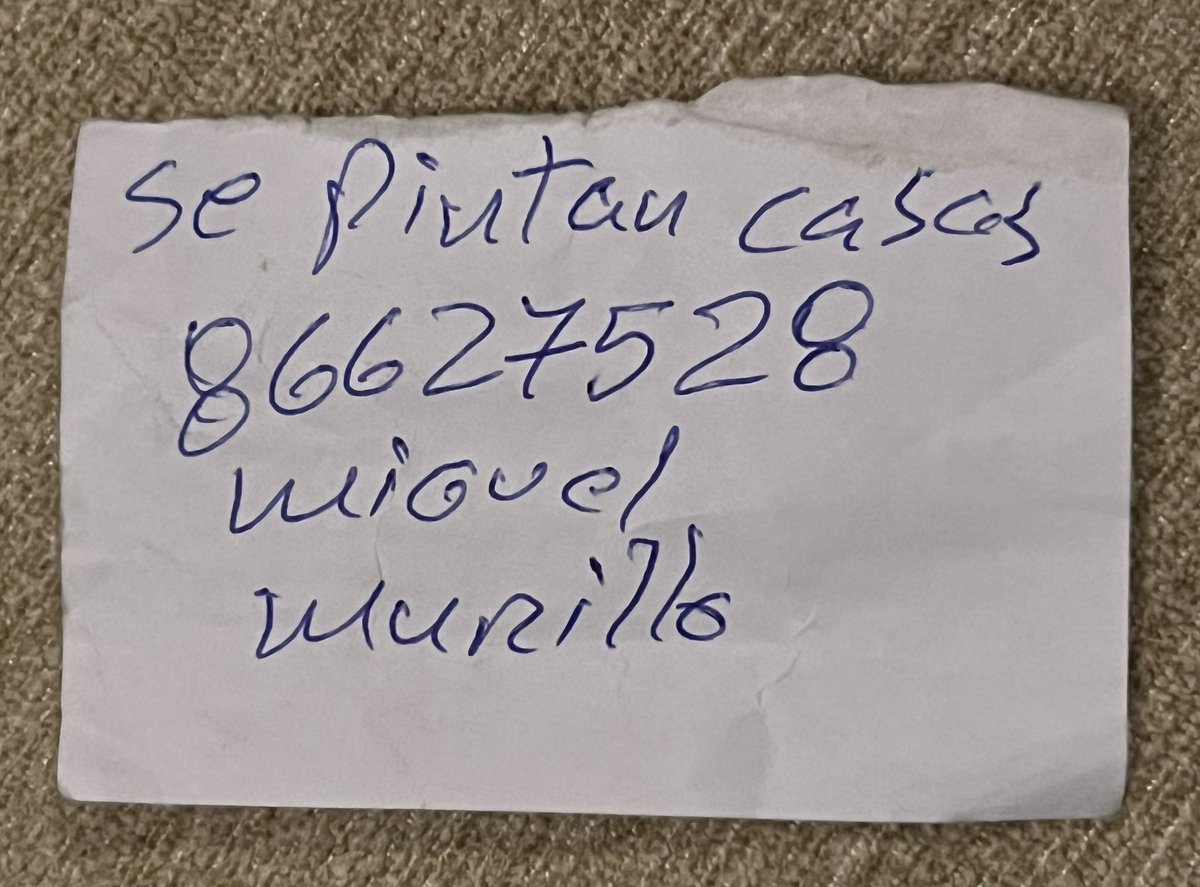 se pintan casas
86627528
miguel
murillo